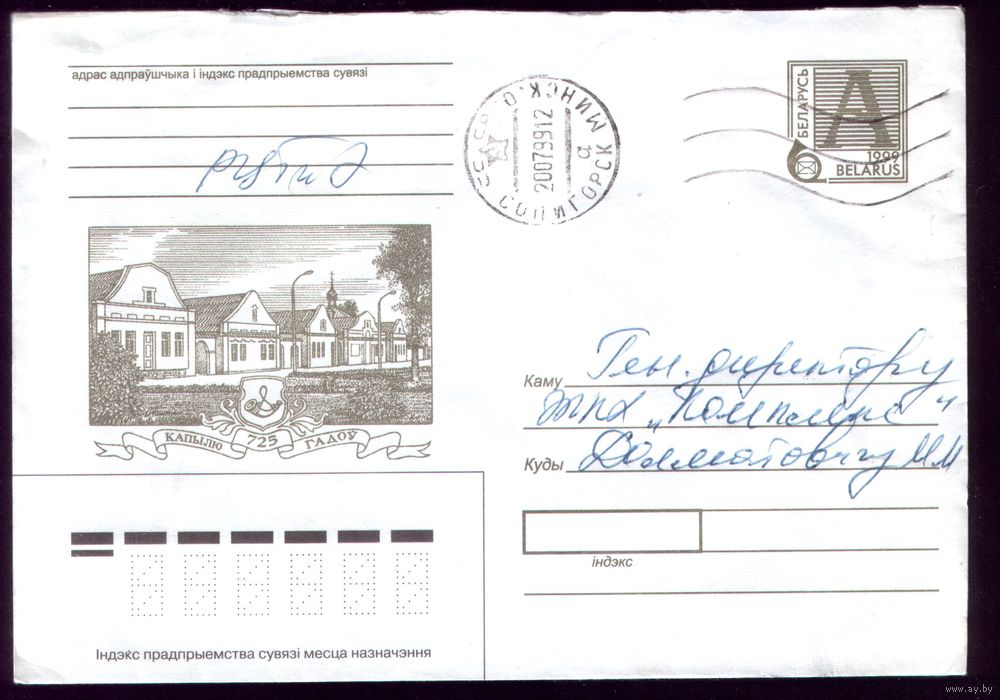 адрас адпраўшчыка і індэкс прадпрыемства сувязі
СССР СОЛИГОРСК МИНСК.О.
20079912
а
БЕЛАРУСЬ
A
1999
BELARUS
КАПЫЛЮ 725 ГАДОЎ
Каму Ген. директору
„Комплекс"
Куды Долматовичу ММ
індэкс
Індэкс прадпрыемства сувязі месца назначэння
www.ay.by